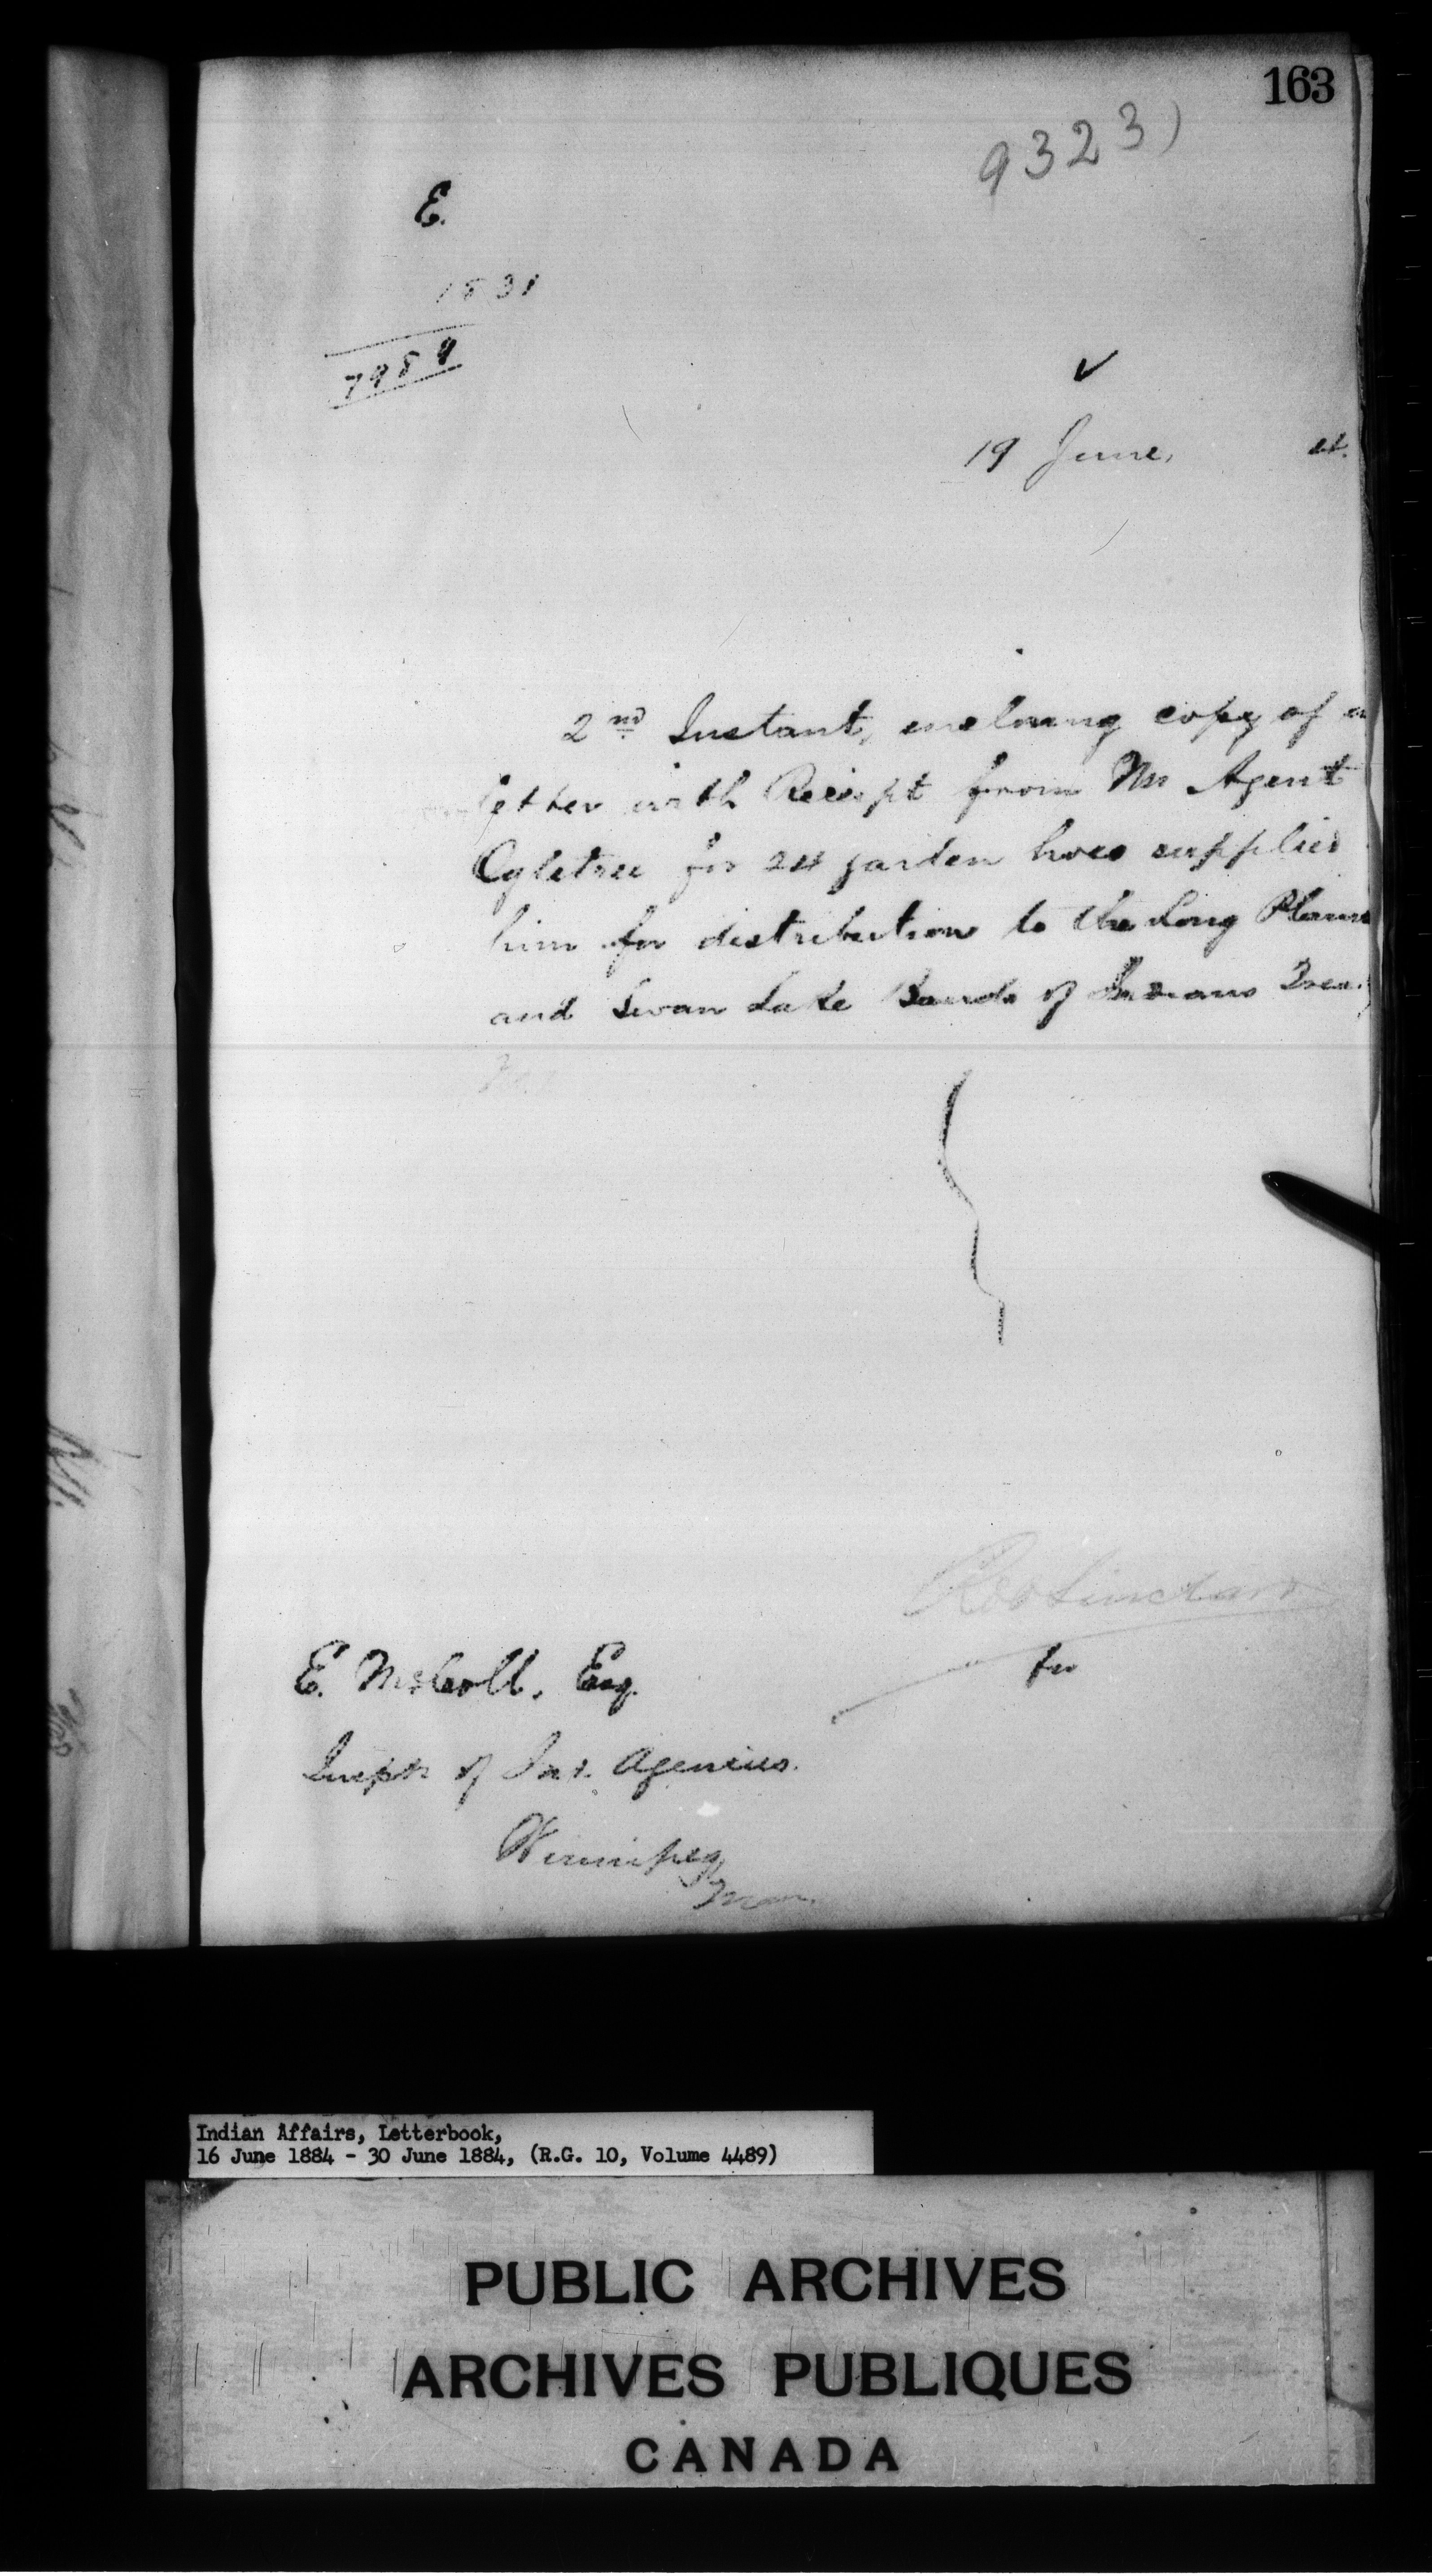 163
9323
E.
1831
7989
19 June,
2nd Instant, enclosing copy of a
letter with Receipt from Mr Agent
Ogletree for 24 garden hoes supplied
him for distribution to the Long Plains
and Swan Lake Bands of Indians
Rob Sinclair
for
E. McColl, Esq.
Inspr of Ind. Agencies.
Winnipeg
Man.
Indian Affairs, Letterbook,
16 June 1884 - 30 June 1884, (R.G. 10, Volume 4489)
PUBLIC ARCHIVES
ARCHIVES PUBLIQUES
CANADA